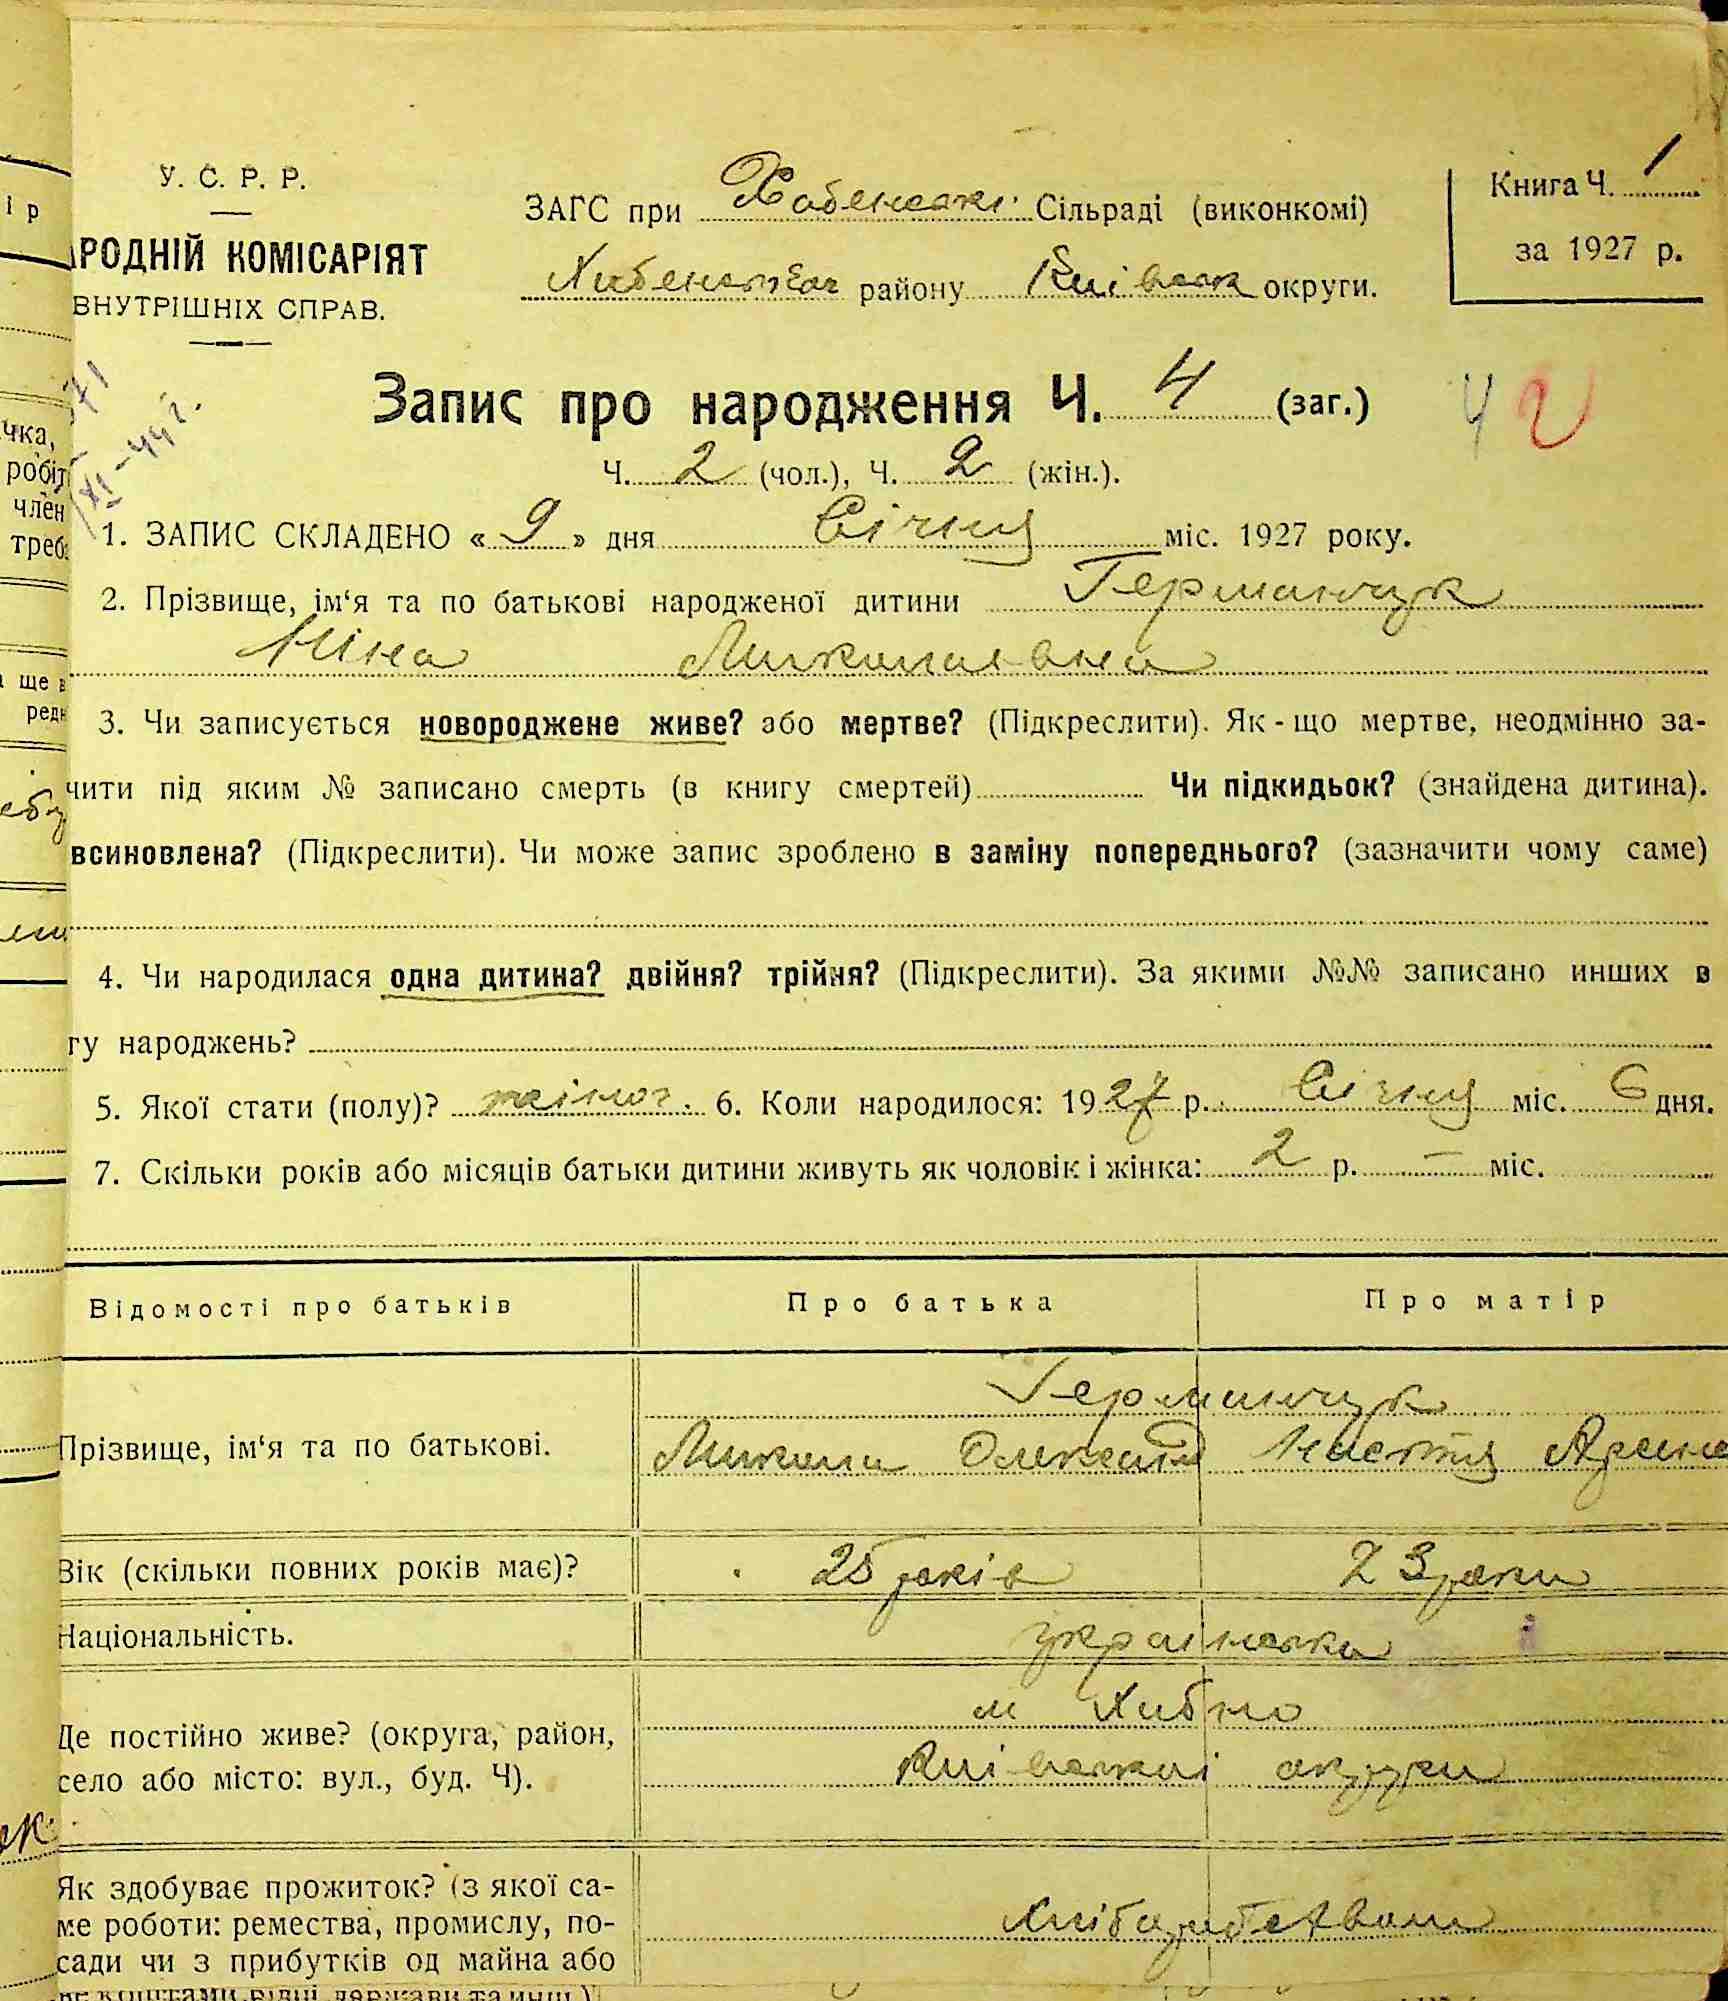 У. С. Р. Р.
РОДНІЙ КОМІСАРІЯТ
ВНУТРІШНІХ СПРАВ.
ЗАГС при Хабенські Сільраді (виконкомі)
Хабенськ району Київськ округи.
Книга Ч. 1
за 1927 р.
Запис про народження Ч. 4 (заг.) 4
Ч. 2 (чол.), Ч. 2 (жін.).
XI-44 г.
1. ЗАПИС СКЛАДЕНО «9» дня Січня міс. 1927 року.
2. Прізвище, ім‘я та по батькові народженої дитини Германчук
Ніна Миколаєвна
3. Чи записується новороджене живе? або мертве? (Підкреслити). Як-що мертве, неодмінно за-
чити під яким № записано смерть (в книгу смертей) Чи підкидьок? (знайдена дитина).
всиновлена? (Підкреслити). Чи може запис зроблено в заміну попереднього? (зазначити чому саме)
4. Чи народилася одна дитина? двійня? трійня? (Підкреслити). За якими №№ записано инших в
гу народжень?
5. Якої стати (полу)? жіноч. 6. Коли народилося: 1927 р. Січня міс. 6 дня.
7. Скільки років або місяців батьки дитини живуть як чоловік і жінка: 2 р. — міс.
Відомості про батьків Про батька Про матір
Германчук
Прізвище, ім‘я та по батькові. Микола Олександ Настя Арсен
Вік (скільки повних років має)? 25 років 23 роки
Національність. українська
м Хабно
Де постійно живе? (округа, район,
село або місто: вул., буд. Ч). Київської округи
Як здобуває прожиток? (з якої са-
ме роботи: ремества, промислу, по- Хліборобством
сади чи з прибутків од майна або